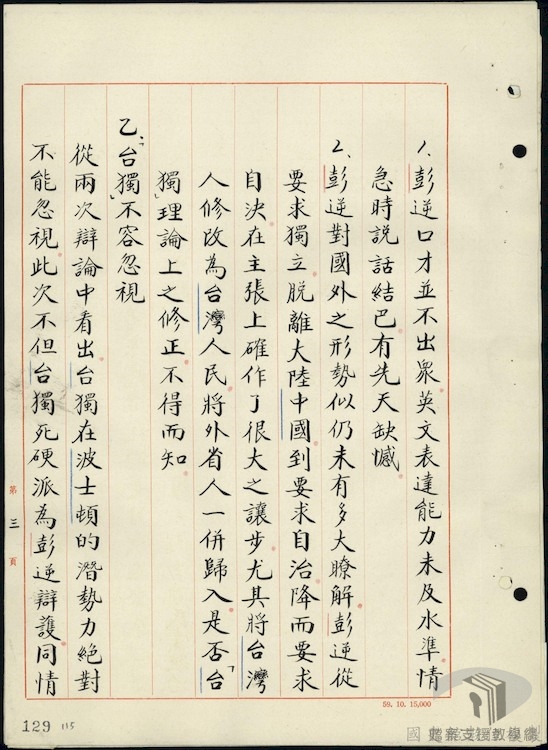 1、彭逆口才並不出眾英文表達能力未及水準情
急時説話結巴有先天缺憾
2、彭逆對國外之形勢似仍未有多大瞭解彭逆從
要求獨立脱離大陸中國到要求自治降而要求
自決在主張上確作了很大之讓步尤其將台灣
人修改為台灣人民將外省人一併歸入是否「台
獨」理論上之修正不得而知
乙、「台獨」不容忽視
從兩次辯論中看出台獨在波士頓的潛勢力絕對
不能忽視此次不但台獨死硬派為彭逆辯護同情
第三頁
59. 10. 15,000
129
115
檔案支援教學網